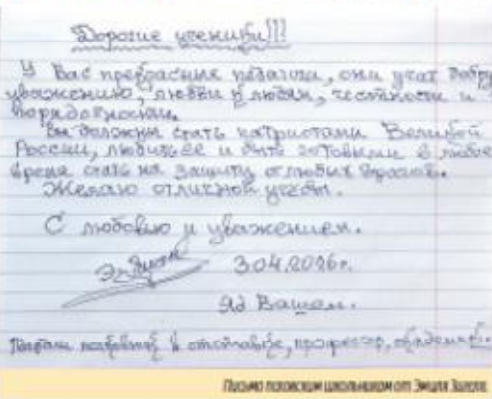 Дорогие ученики!!!
У Вас прекрасные педагоги, они учат добру,
уважению, любви к людям, честности и
порядочности.
Вы должны стать патриотами Великой
России, любить её и быть готовыми в любое
время стать на защиту от любых врагов.
Желаю отличной учёбы.
С любовью и уважением.
3.04.2026г.
Яд Вашем.
в отставке, профессор, академик
Письмо псковским школьникам от Эмиля Зигеля.